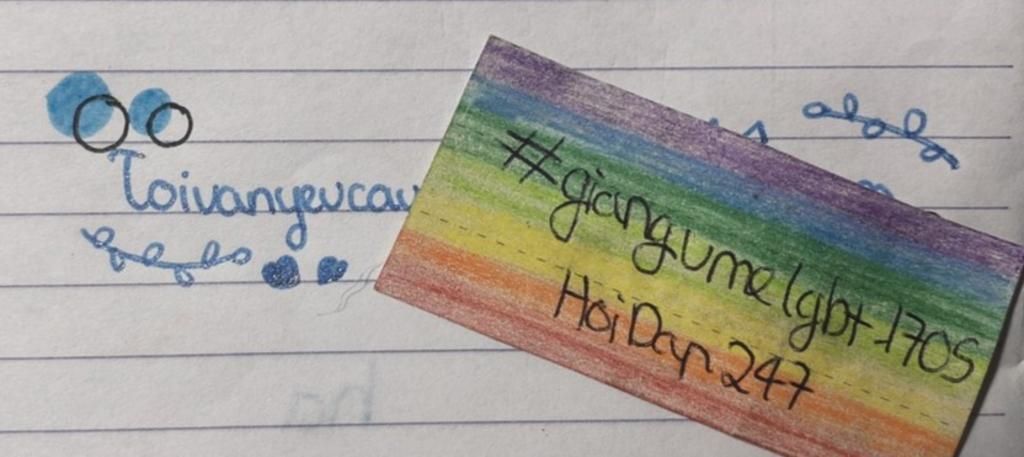 Toivanyeucau
#giangumelgbt-1705
HoiDap247